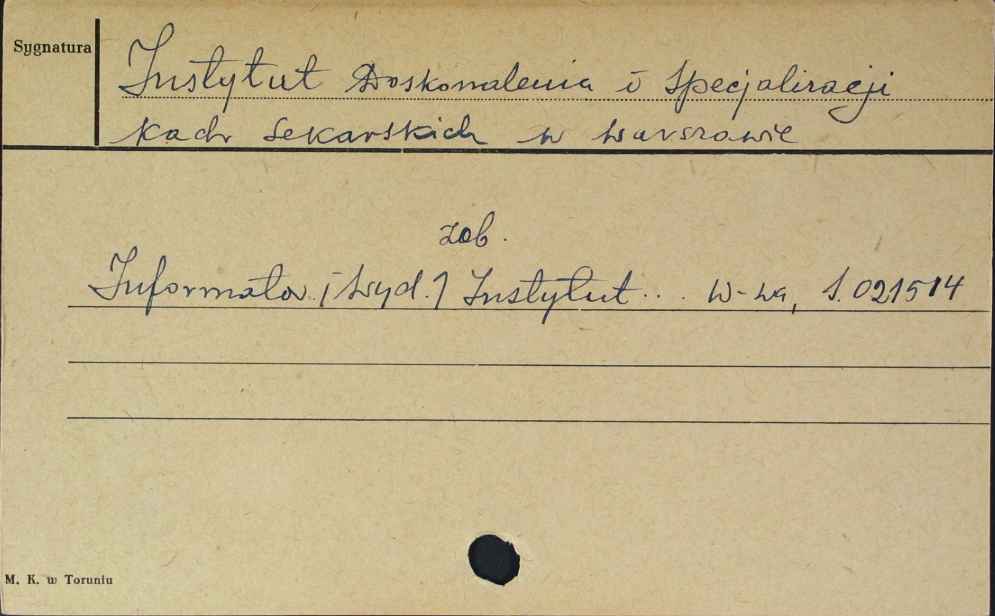 Sygnatura
Instytut Doskonalenia i Specjalizacji
Kadr Lekarskich w Warszawie
zob.
Informator. [Wyd.] Instytut... W-wa, S. 021514
M. K. w Toruniu